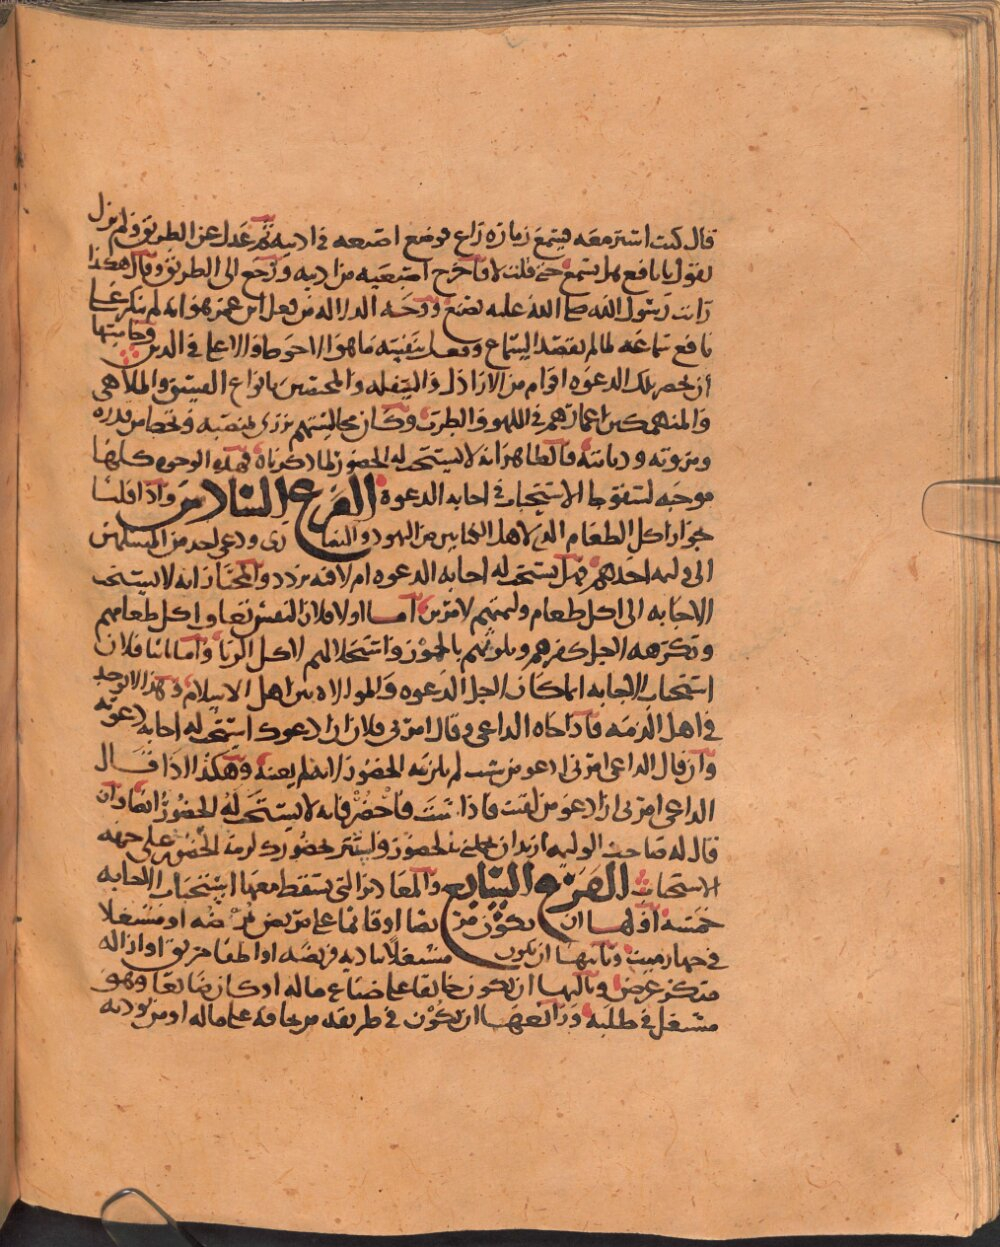 قال كنت اسير معه فسمع زمارة راع فوضع اصبعه في اذنيه ثم عدل عن الطريق ولم يزل
يقول يا نافع هل تسمع حتى قلت لا فاخرج اصبعيه من اذنيه ورجع الى الطريق وقال هكذا
رايت رسول الله صلى الله عليه يصنع ووجه الدلاله من فعل ابن عمر هو انه لم ينكر على
نافع سماعه لما لم يقصد السماع وفعل بنفسه ما هو الاحوط والاعلى في الدين وخامسها
ان يحضر تلك الدعوه اقوام من الاراذل والسفله والمختصين بانواع الفسق والملاهي
والمنهمكين اعمارهم في اللهو والطرب وكان مجالستهم تزري بمنصبه وتحط من قدره
ومروته وديانته فالظاهر انه لا يستحب له الحضور لما ذكرناه فهذه الوجوه كلها
موجبه لسقوط الاستحباب في اجابه الدعوة الفرع السادس واذا قلنا
بجواز اكل الطعام الذي لاهل الكتابين من اليهود والنصارى ودعي احد من المسلمين
الى وليمه احدهم فهل يستحب له اجابه الدعوه ام لا فيه تردد والمختار انه لا يستحب
الاجابه الى اكل طعام وليمتهم لامرين اما اولا فلان النفس تعاف اكل طعامهم
وتكرهه لاجل كفرهم وتلوثهم بالخمور واستحلالهم لاكل الربا واما ثانيا فلان
استحباب الاجابه انما كان لاجل الدعوه والموالاه بين اهل الاسلام وهذا لا يوجد
في اهل الذمه فاذا جاه الداعي وقال امرني فلان ان ادعوك استحب له اجابه دعوته
وان قال الداعي امرني ان ادعو من شئت لم يلزمه الحضور لانه لم يعينه وهكذا اذا قال
الداعي امرني ان ادعو من لقيت فاذا شئت فاحضر فانه لا يستحب له الحضور ايضا وان
قال له صاحب الوليمه اريد ان تجملني بالحضور وايسر بحضورك لزمه الحضور على جهه
الاستحباب الفرع السابع والمعاذير التي يسقط معها استحباب الاجابه
خمسه اولها ان يكون مريضا او قائما على مريض يمرضه او مشتغلا
في جهاز ميت وثانيها ان يكون مشتغلا بتاديه فريضه او اطفا حريق او ازاله
منكر عرض وثالثها ان يكون خائفا على ضياع ماله او كان ضائعا وهو
مشتغل في طلبه ورابعها ان يكون في طريقه من يخافه على ماله او من يوذيه